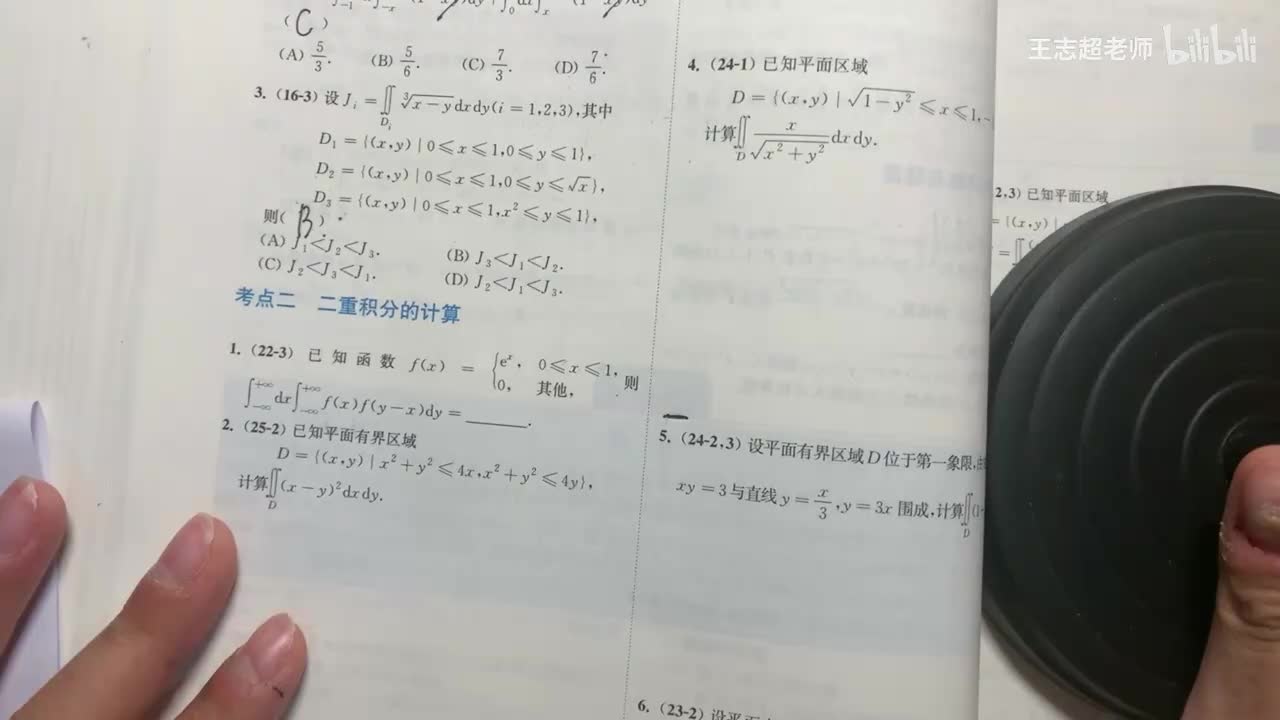 (C)
(A) 5/3. (B) 5/6. (C) 7/3. (D) 7/6.
3. (16-3) 设 J_i = ∬_{D_i} ∛(x-y) dxdy (i = 1,2,3), 其中
D₁ = {(x,y) | 0 ≤ x ≤ 1, 0 ≤ y ≤ 1},
D₂ = {(x,y) | 0 ≤ x ≤ 1, 0 ≤ y ≤ √x},
D₃ = {(x,y) | 0 ≤ x ≤ 1, x² ≤ y ≤ 1},
则( B ).
(A) J₁ < J₂ < J₃. (B) J₃ < J₁ < J₂.
(C) J₂ < J₃ < J₁. (D) J₂ < J₁ < J₃.
考点二 二重积分的计算
1. (22-3) 已知函数 f(x) = {eˣ, 0 ≤ x ≤ 1, 0, 其他, 则
∫_{-∞}^{+∞} dx ∫_{-∞}^{+∞} f(x)f(y-x)dy = ______.
2. (25-2) 已知平面有界区域
D = {(x,y) | x² + y² ≤ 4x, x² + y² ≤ 4y},
计算∬_D (x-y)² dxdy.
4. (24-1) 已知平面区域
D = {(x,y) | √(1-y²) ≤ x ≤ 1,
计算∬_D x/√(x²+y²) dxdy.
5. (24-2,3) 设平面有界区域 D 位于第一象限,由
xy = 3 与直线 y = x/3, y = 3x 围成, 计算∬_D (1
6. (23-2) 设平面
2,3) 已知平面区域
= {(x,y) |
= ∬
王志超老师 bilibili